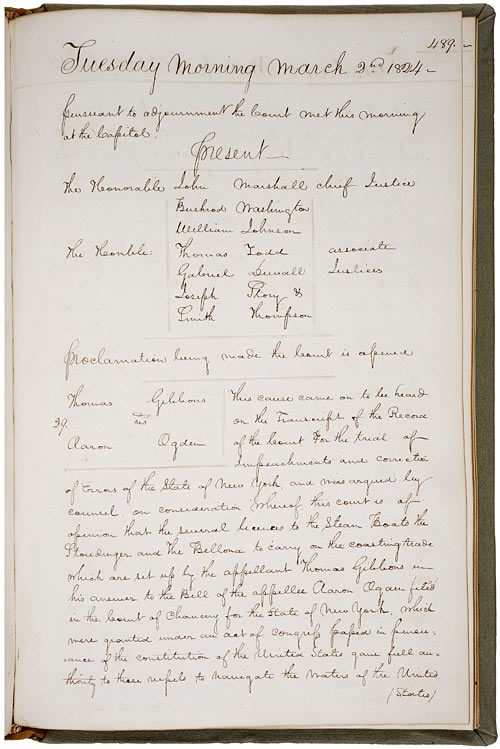 489.
Tuesday Morning March 2nd 1824
Pursuant to adjournment the Court met this morning
at the Capitol.
Present
The Honorable John Marshall chief Justice
Bushrod Washington
William Johnson
The Honble: Thomas Todd associate
Gabriel Duvall Justices
Joseph Story &
Smith Thompson
Proclamation being made the Court is opened
Thomas Gibbons This cause came on to be heard
vs on the Transcript of the Record
29. of the Court for the trial of
Aaron Ogden Impeachments and correction
of Errors of the State of New York, and was argued by
counsel on consideration whereof this court is of
opinion that the several licences to the Steam Boats the
Stoudinger and the Bellona to carry on the coasting trade
which are set up by the appellant Thomas Gibbons in
his answer to the Bill of the appellee Aaron Ogden filed
in the Court of Chancery for the State of New York, which
were granted under an act of Congress passed in pursu-
ance of the constitution of the United States gave full au-
thority to those vessels to navigate the waters of the United
(States)